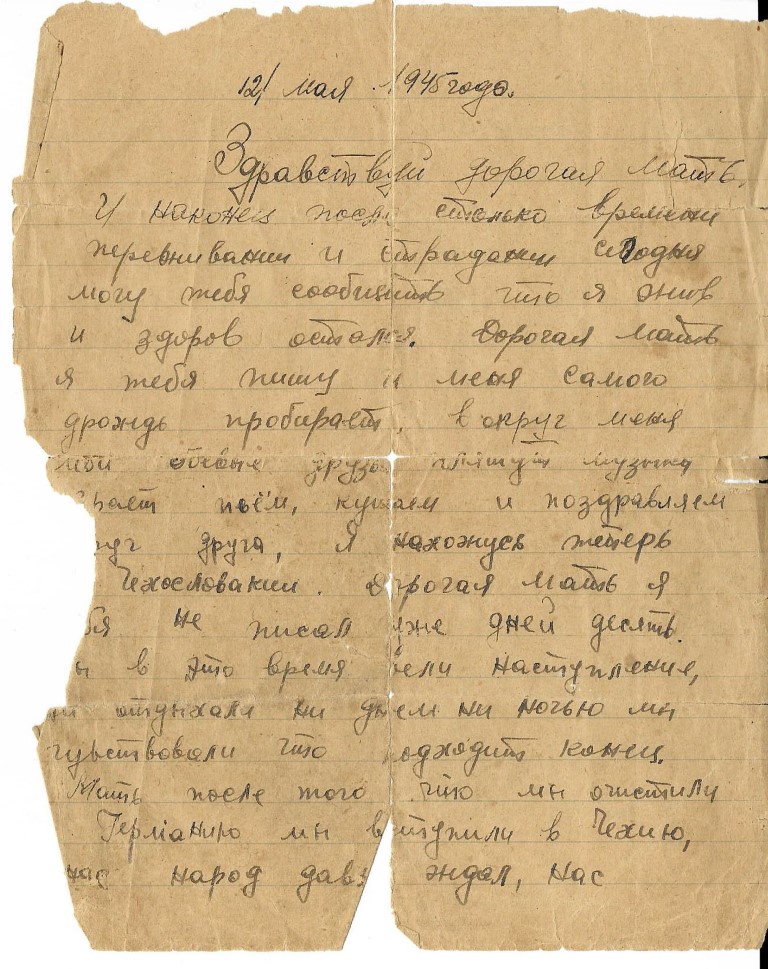 12/ мая 1945 года.
Здравствуй дорогая мать.
И наконец после столько времени
переживании и страдании сегодня
могу тебя сообщить что я жив
и здоров остался. Дорогая мать
я тебя пишу и меня самого
дрождь пробирает, вокруг меня
друзья пляшут музыка
рает поём, кушаем и поздравляем
руг друга, я нахожусь теперь
Чехословакии. Дорогая мать я
бя не писал уже дней десять.
ы в это время вели наступления,
отдыхали ни днем ни ночью мы
чувствовали что подходит конец.
Мать после того что мы очистили
Германию мы вступили в Чехию,
нас народ давно ждал, нас